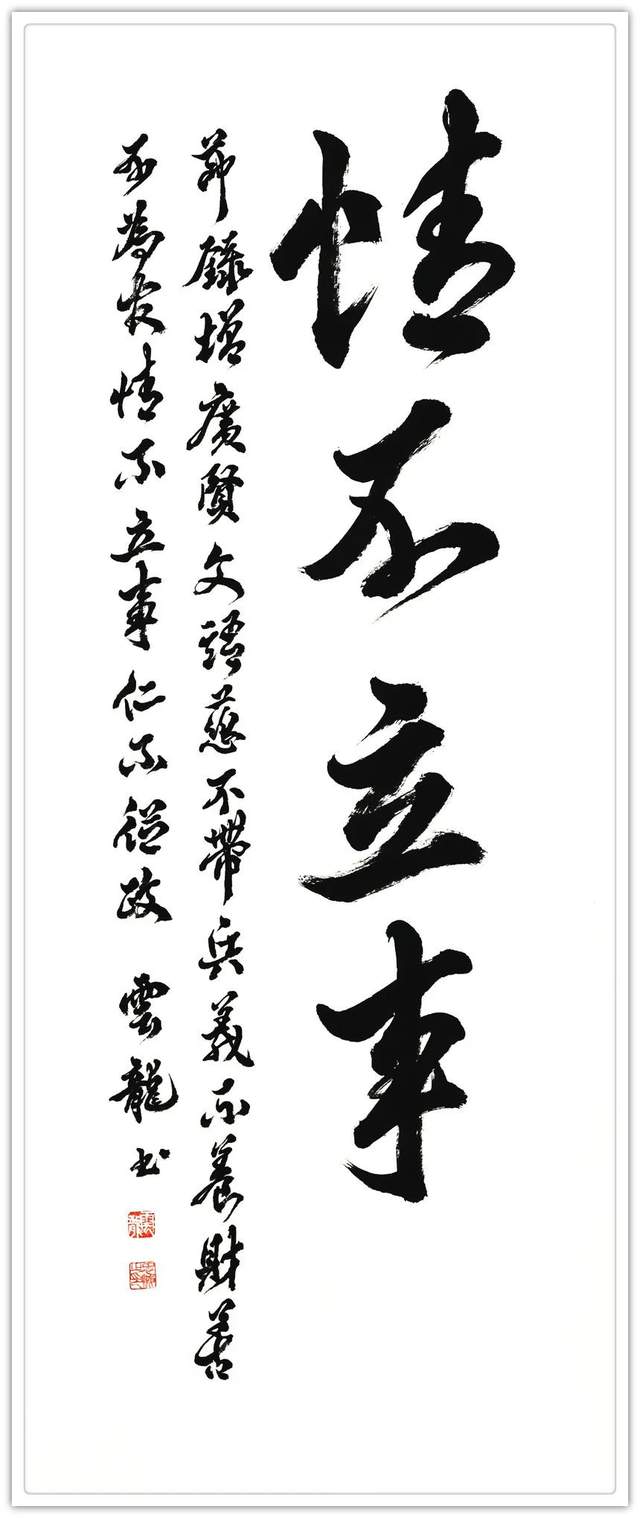 情不立事
節錄增廣賢文語慈不帶兵義不養財善
不為官情不立事仁不從政 雲龍书